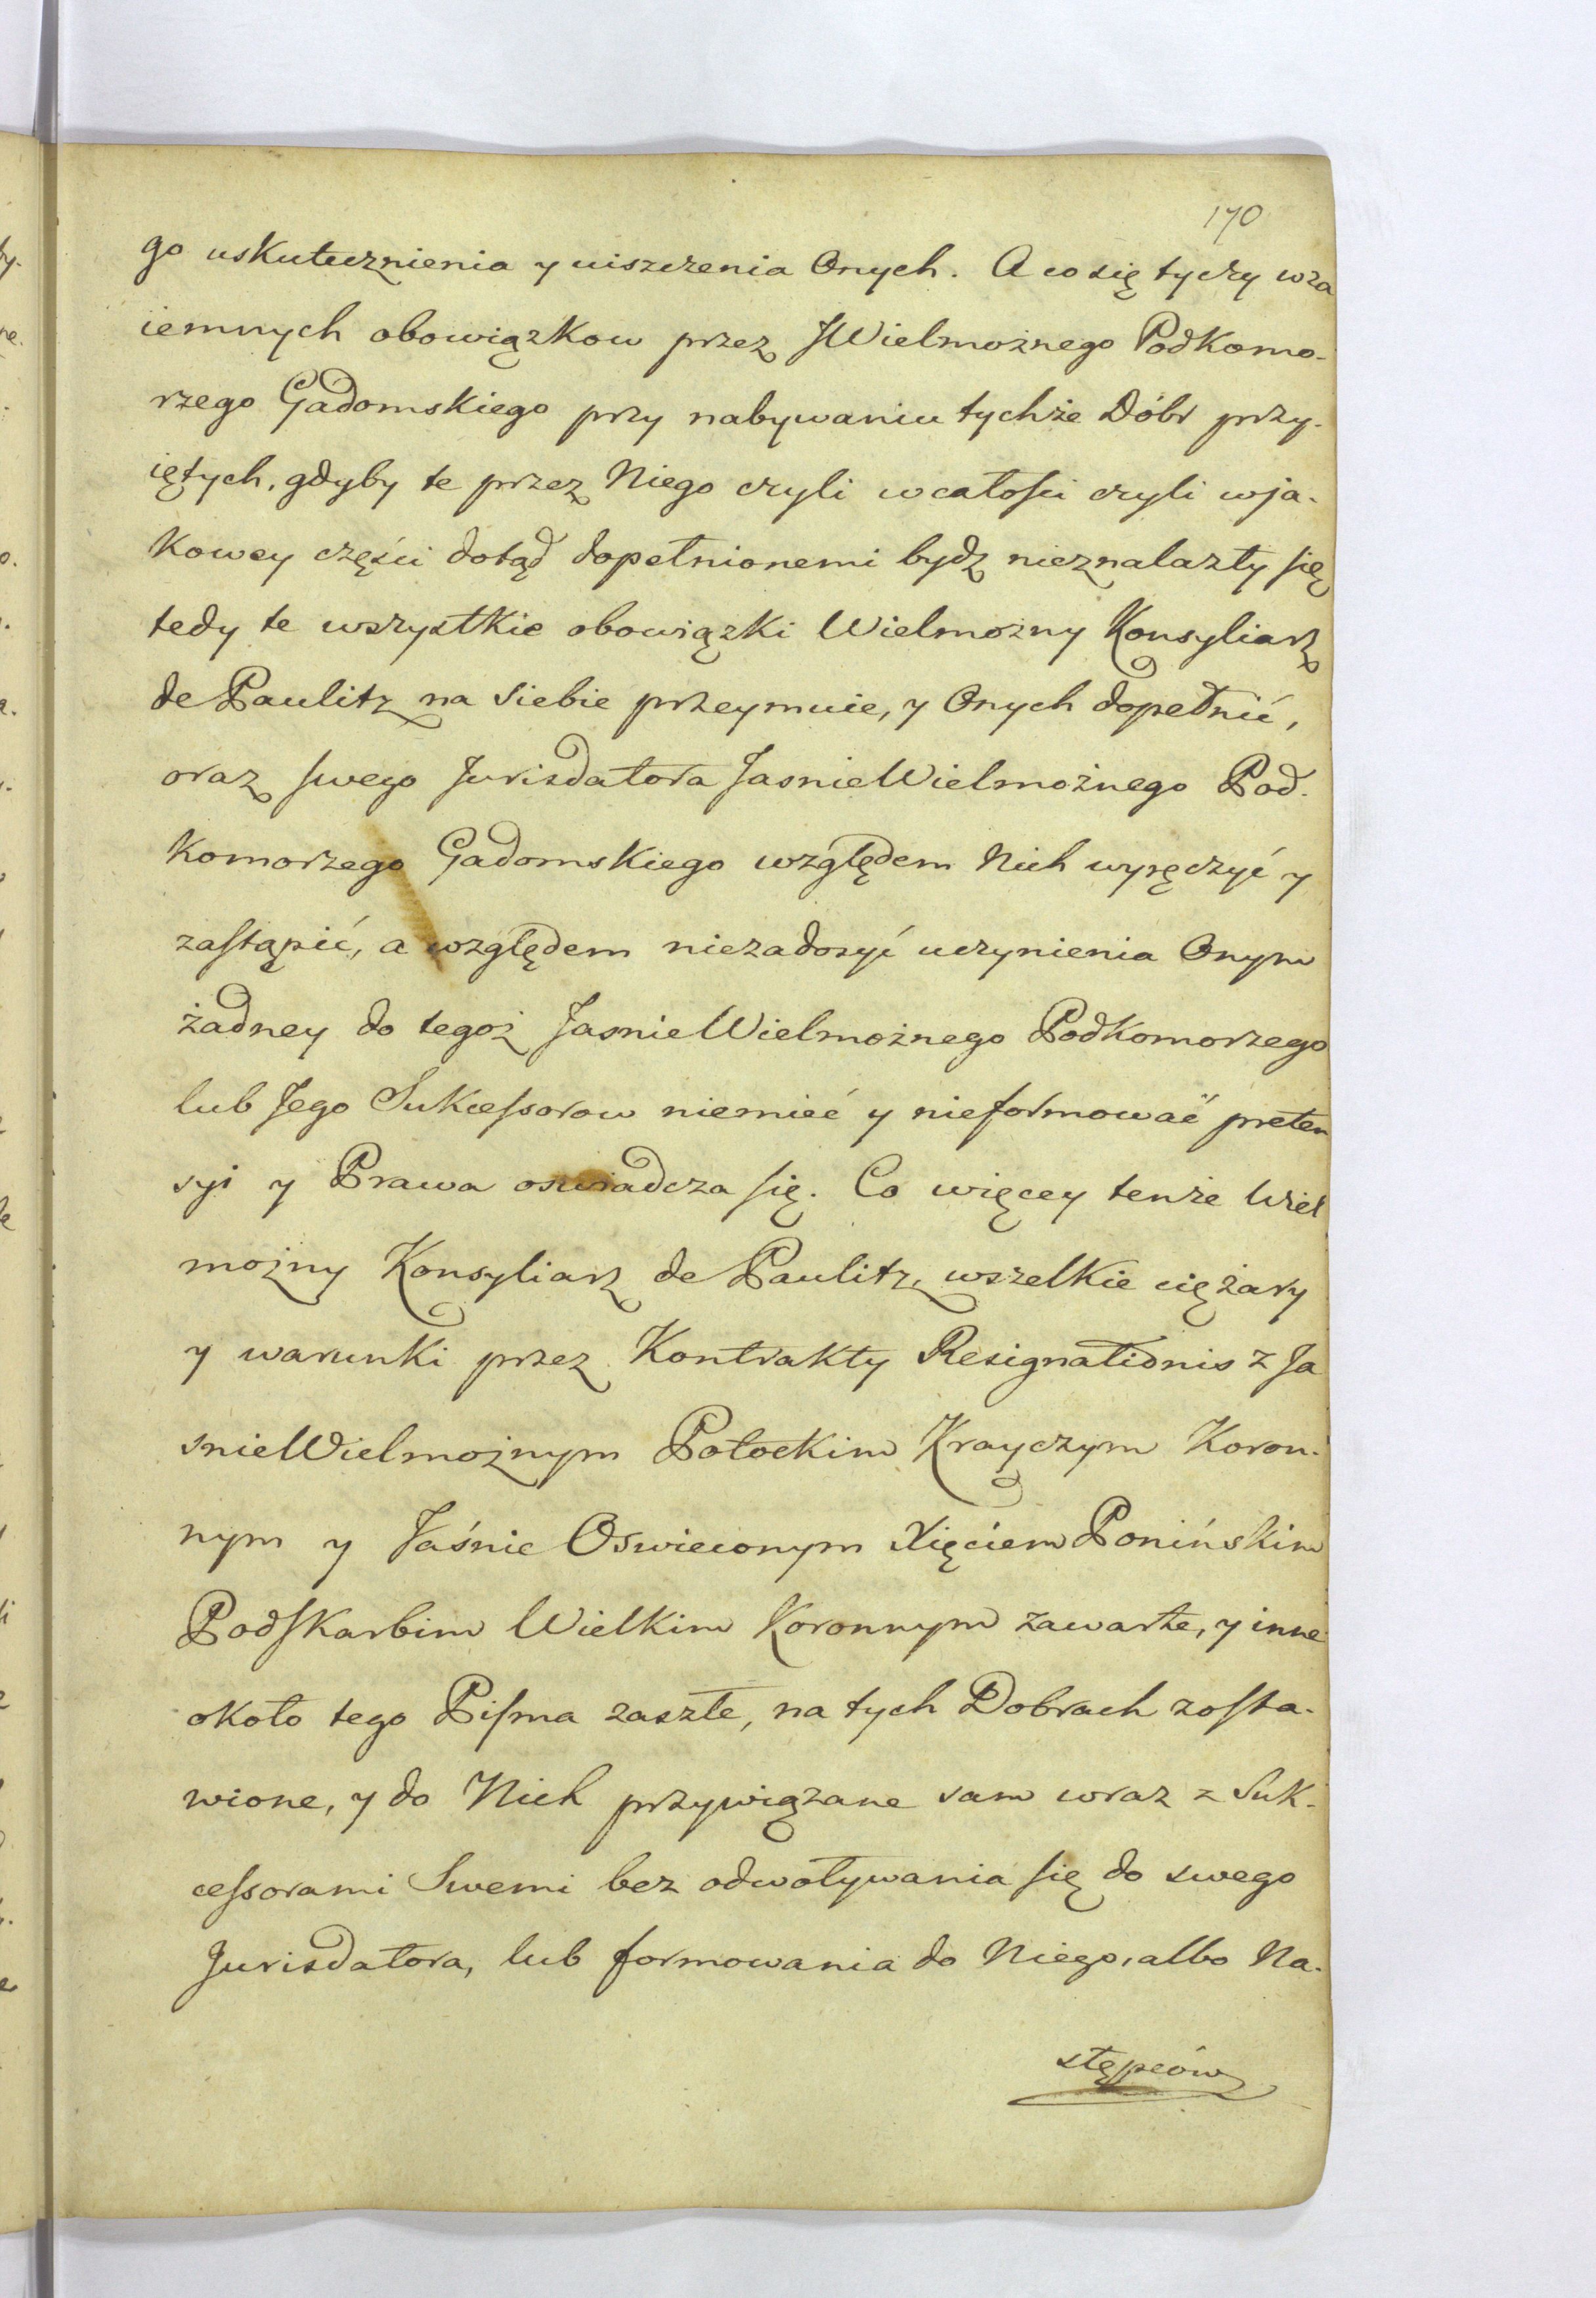 170
go uskutecznienia y uiszczenia Onych. A co się tyczy wza
iemnych obowiązkow przez JWielmożnego Podkomo-
rzego Gadomskiego przy nabywaniu tychże Dóbr przy-
iętych, gdyby te przez Niego czyli w całości czyli wja-
kowey części dotąd dopełnionemi bydz nieznalazły się
tedy te wszystkie obowiązki Wielmożny Konsyliarz
de Paulitz na siebie przeymuie, y Onych dopełnić,
oraz swego Jurisdatora JasnieWielmożnego Pod-
komorzego Gadomskiego względem Nich wyręczyć y
zastąpić, a względem niezadosyć uczynienia Onym
żadney do tegoż JasnieWielmożnego Podkomorzego
lub Jego Sukcessorow niemieć y nieformować preten
syi y Prawa oswiadcza się. Co więcey tenże Wiel
możny Konsyliarz de Paulitz, wszelkie ciężary
y warunki przez Kontrakty Resignationis z Ja
snieWielmożnym Potockim Krayczym Koron-
nym y Jaśnie Oswieconym Xięciem Ponińskim
Podskarbim Wielkim Koronnym zawarte, y inne
około tego Pisma zaszłe, na tych Dobrach zosta-
wione, y do Nich przywiązane sam wraz z Suk-
cessorami Swemi bez odwoływania się do swego
Jurisdatora, lub formowania do Niego, albo Na-
stępców